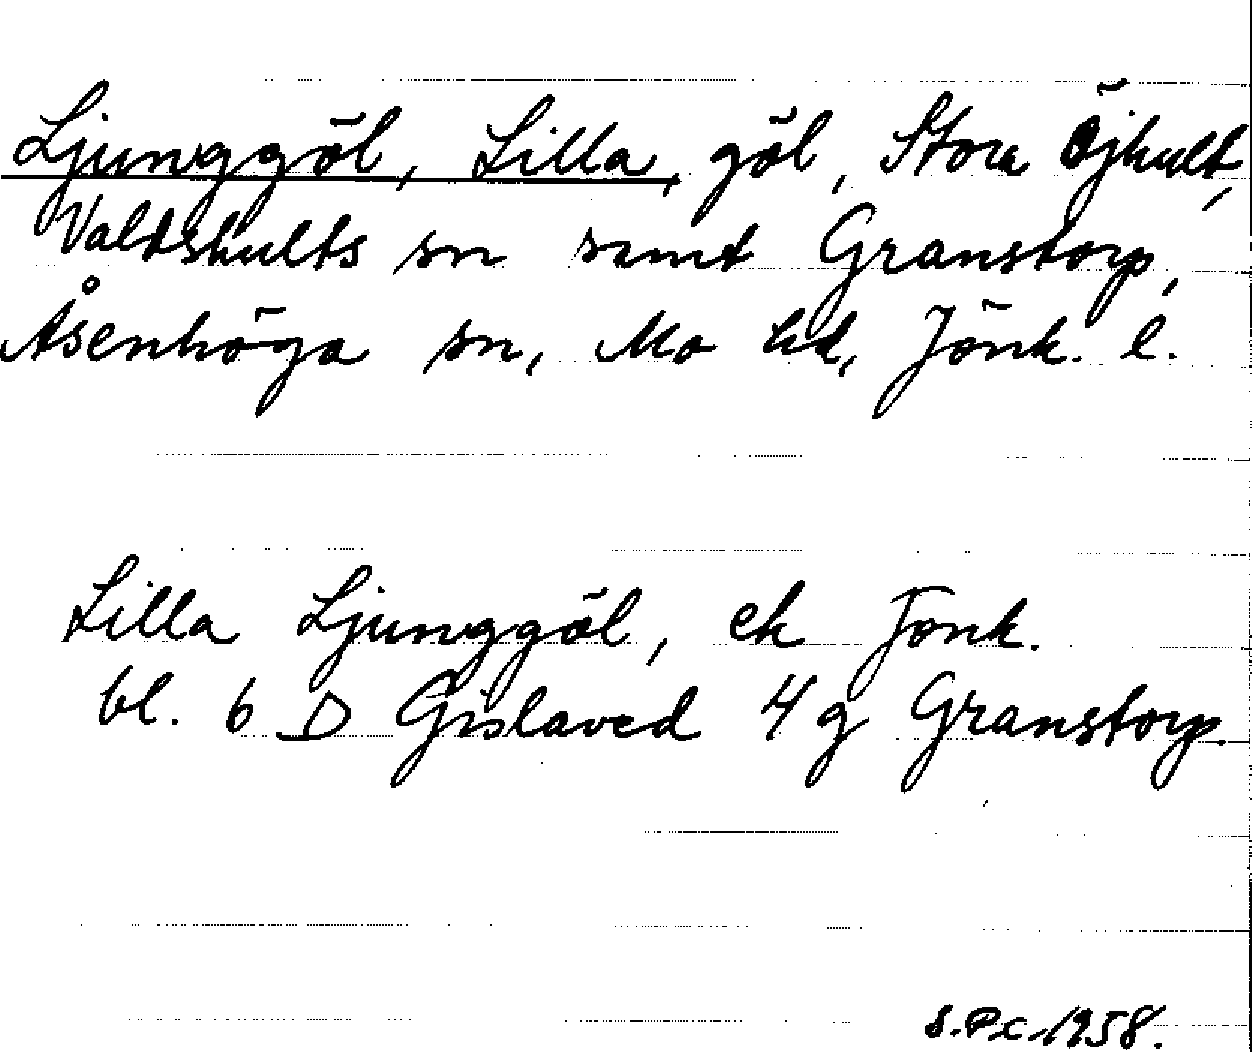 Ljunggöl, Lilla, göl, Stora Öjhult,
Valdshults sn samt Granstorp,
Åsenhöga sn, Mo hd, Jönk. l.
Lilla Ljunggöl, ek Jönk.
bl. 6 D Gislaved 4 g Granstorp.
S.P.c. 1958.